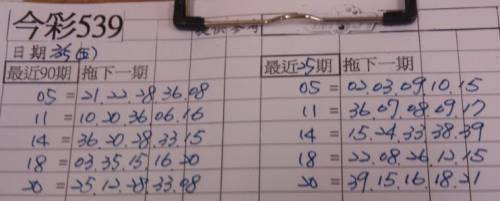 今彩539
提供參考
日期 3/5(五)
最近90期 拖下一期
05 = 21.22.28.36.08
11 = 10.20.36.06.16
14 = 36.20.28.33.15
18 = 03.35.15.16.20
20 = 25.12.28.33.08
最近25期 拖下一期
05 = 02.03.09.10.15
11 = 36.07.08.09.17
14 = 15.24.33.38.39
18 = 22.08.26.12.15
20 = 39.15.16.18.21